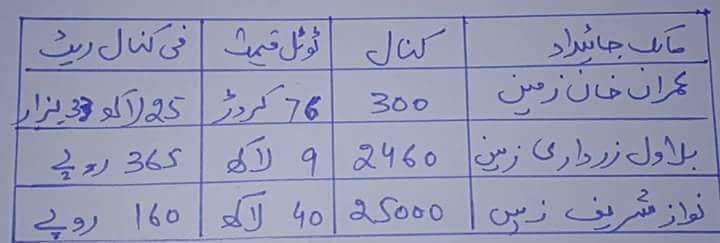 مالک جائیداد کنال ٹوٹل قیمت فی کنال ریٹ
عمران خان زمین 300 76 کروڑ 25 لاکھ 33 ہزار
بلاول زرداری زمین 2460 9 لاکھ 365 روپے
نواز شریف زمین 25000 40 لاکھ 160 روپے